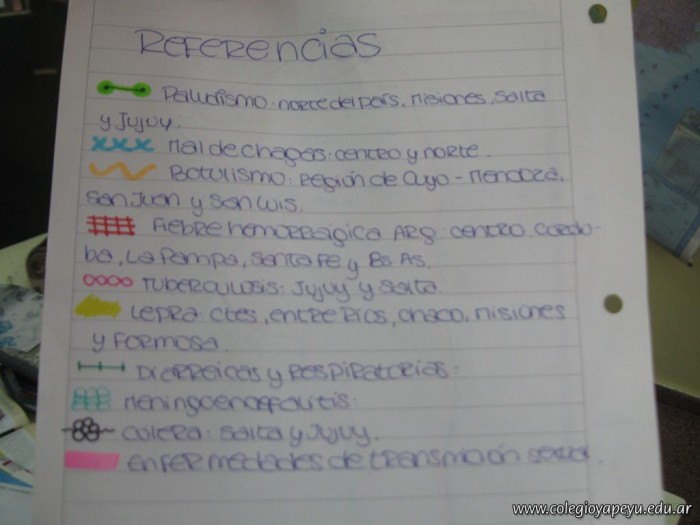 Referencias
Paludismo: norte del país, Misiones, Salta
y Jujuy.
Mal de chagas: centro y norte.
Botulismo: Región de Cuyo - Mendoza,
San Juan y San Luis.
Fiebre hemorrágica Arg: centro. Cordo-
ba, La Pampa, Santa Fe y Bs As.
Tuberculosis: Jujuy y Salta.
Lepra: Ctes, Entre Rios, Chaco, Misiones
y Formosa.
Diarreicas y Respiratorias:
Meningoencefalitis:
Colera: Salta y Jujuy.
Enfermedades de transmación sexual.
www.colegioyapeyu.edu.ar